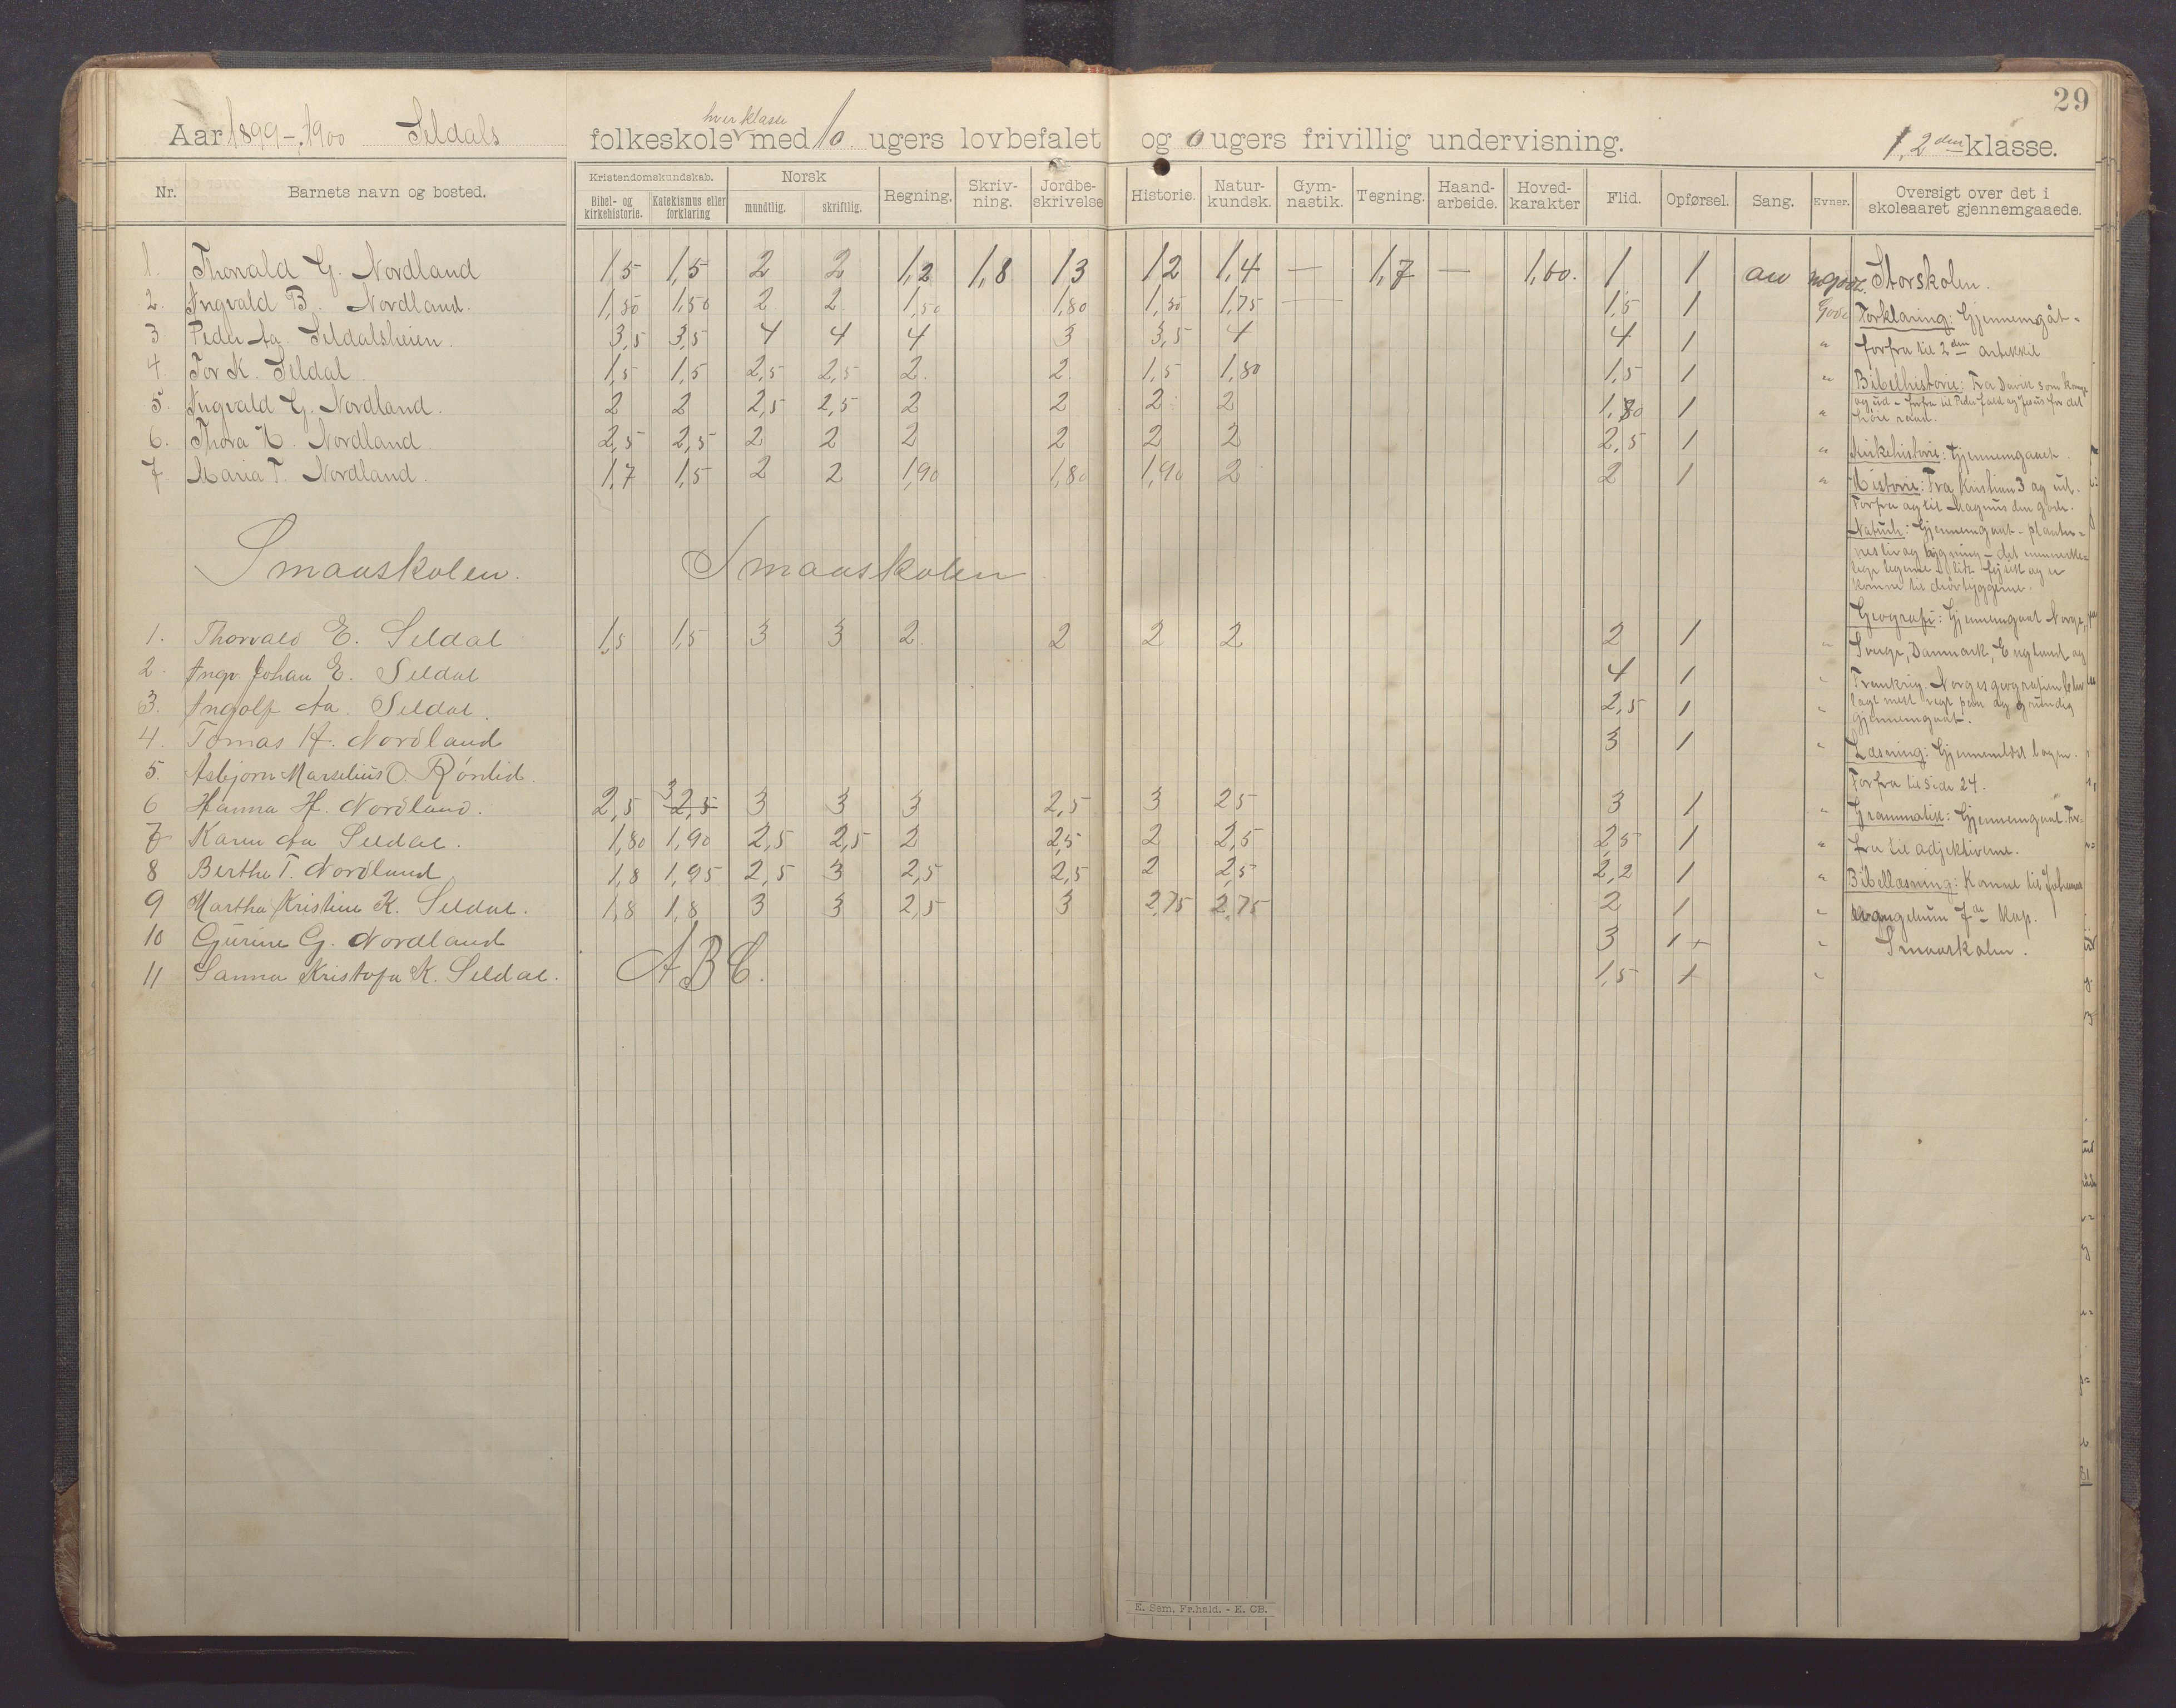 29
Aar 1899-1900 Seldals folkeskole hver klasse med 10 ugers lovbefalet og 0 ugers frivillig undervisning. 1, 2den klasse.
Nr. Barnets navn og bosted. Kristendomskundskab. Bibel- og kirkehistorie. Katekismus eller forklaring Norsk mundtlig. skriftlig. Regning. Skriv-ning. Jordbe-skrivelse Historie. Natur-kundsk. Gym-nastik. Tegning. Haand-arbeide. Hoved-karakter Flid. Opførsel. Sang. Evner. Oversigt over det i skoleaaret gjennemgaaede.
1. Thorvald G. Nordland 1,5 1,5 2 2 1,2 1,8 1,3 1,2 1,4 — 1,7 — 1,60. 1 1 au mgode.
2. Ingvald B. Nordland. 1,50 1,50 2 2 1,50 1,80 1,50 1,75 1,5 1 Gode
3 Peder Aa. Seldalsheien. 3,5 3,5 4 4 4 3 3,5 4 4 1 "
4. Tor K. Seldal 1,5 1,5 2,5 2,5 2. 2. 1,5 1,80 1,5 1 "
5. Ingvald G. Nordland. 2 2 2,5 2,5 2 2 2 2 1,80 1 "
6. Thora N. Nordland. 2,5 2,5 2 2 2 2 2 2 2,5 1 "
7. Maria T. Nordland. 1,7 1,5 2 2 1,90 1,80 1,90 2 2 1 "
Smaaskolen. Smaaskolen.
1. Thorvald E. Seldal 1,5 1,5 3 3 2 2 2 2 2 1 "
2. Ingv. Johan E. Seldal 4 1 "
3. Ingolf Aa. Seldal. 2,5 1 "
4. Tomas H. Nordland 3 1 "
5. Asbjørn Marselius O. Rønlid.
6 Hanna H. Nordland. 2,5 3 2,5 3 3 3 2,5 3 2,5 3 1 "
7 Karen Aa Seldal. 1,80 1,90 2,5 2,5 2 2,5 2 2,5 2,5 1 "
8 Berthe T. Nordland 1,8 1,95 2,5 3 2,5 2,5 2 2,5 2,2 1 "
9 Martha Kristine K. Seldal. 1,8 1,8 3 3 2,5 3 2,75 2,75 2 1 "
10 Gurine G. Nordland 3 1+ "
11 Sanna Kristofa K. Seldal. ABC. 1,5 + "
Storskolen.
Forklaring: Gjennemgåt -
forfra til 2den artikkel
Bibelhistorie: Fra David som konge
og ud - forfra til Peders fald og Jesus for det
høie raad.
Kirkehistorie: Gjennemgaaet.
Historie: Fra Kristian 3 og ud.
Forfra og til Magnus den gode.
Naturh: Gjennemgaat - planter-
nes liv og bygning - det menneske-
lige legeme
komne til drøvtyggerne.
Geografi: Gjennemgaat Norge,
Sverge, Danmark, England og
Frankrig. Norges geografien blev
lagt mest vegt paa og grundig
gjennemgaat.
Læsning: Gjennemlæst bogen.
Forfra til side 24.
Grammatik: Gjennemgaat. For-
fra til adjektiverne.
Bibellæsning: Komne til Johannes
evangelium 7de Kap.
Smaaskolen.
E. Sem. Fr.hald. - E. CB.